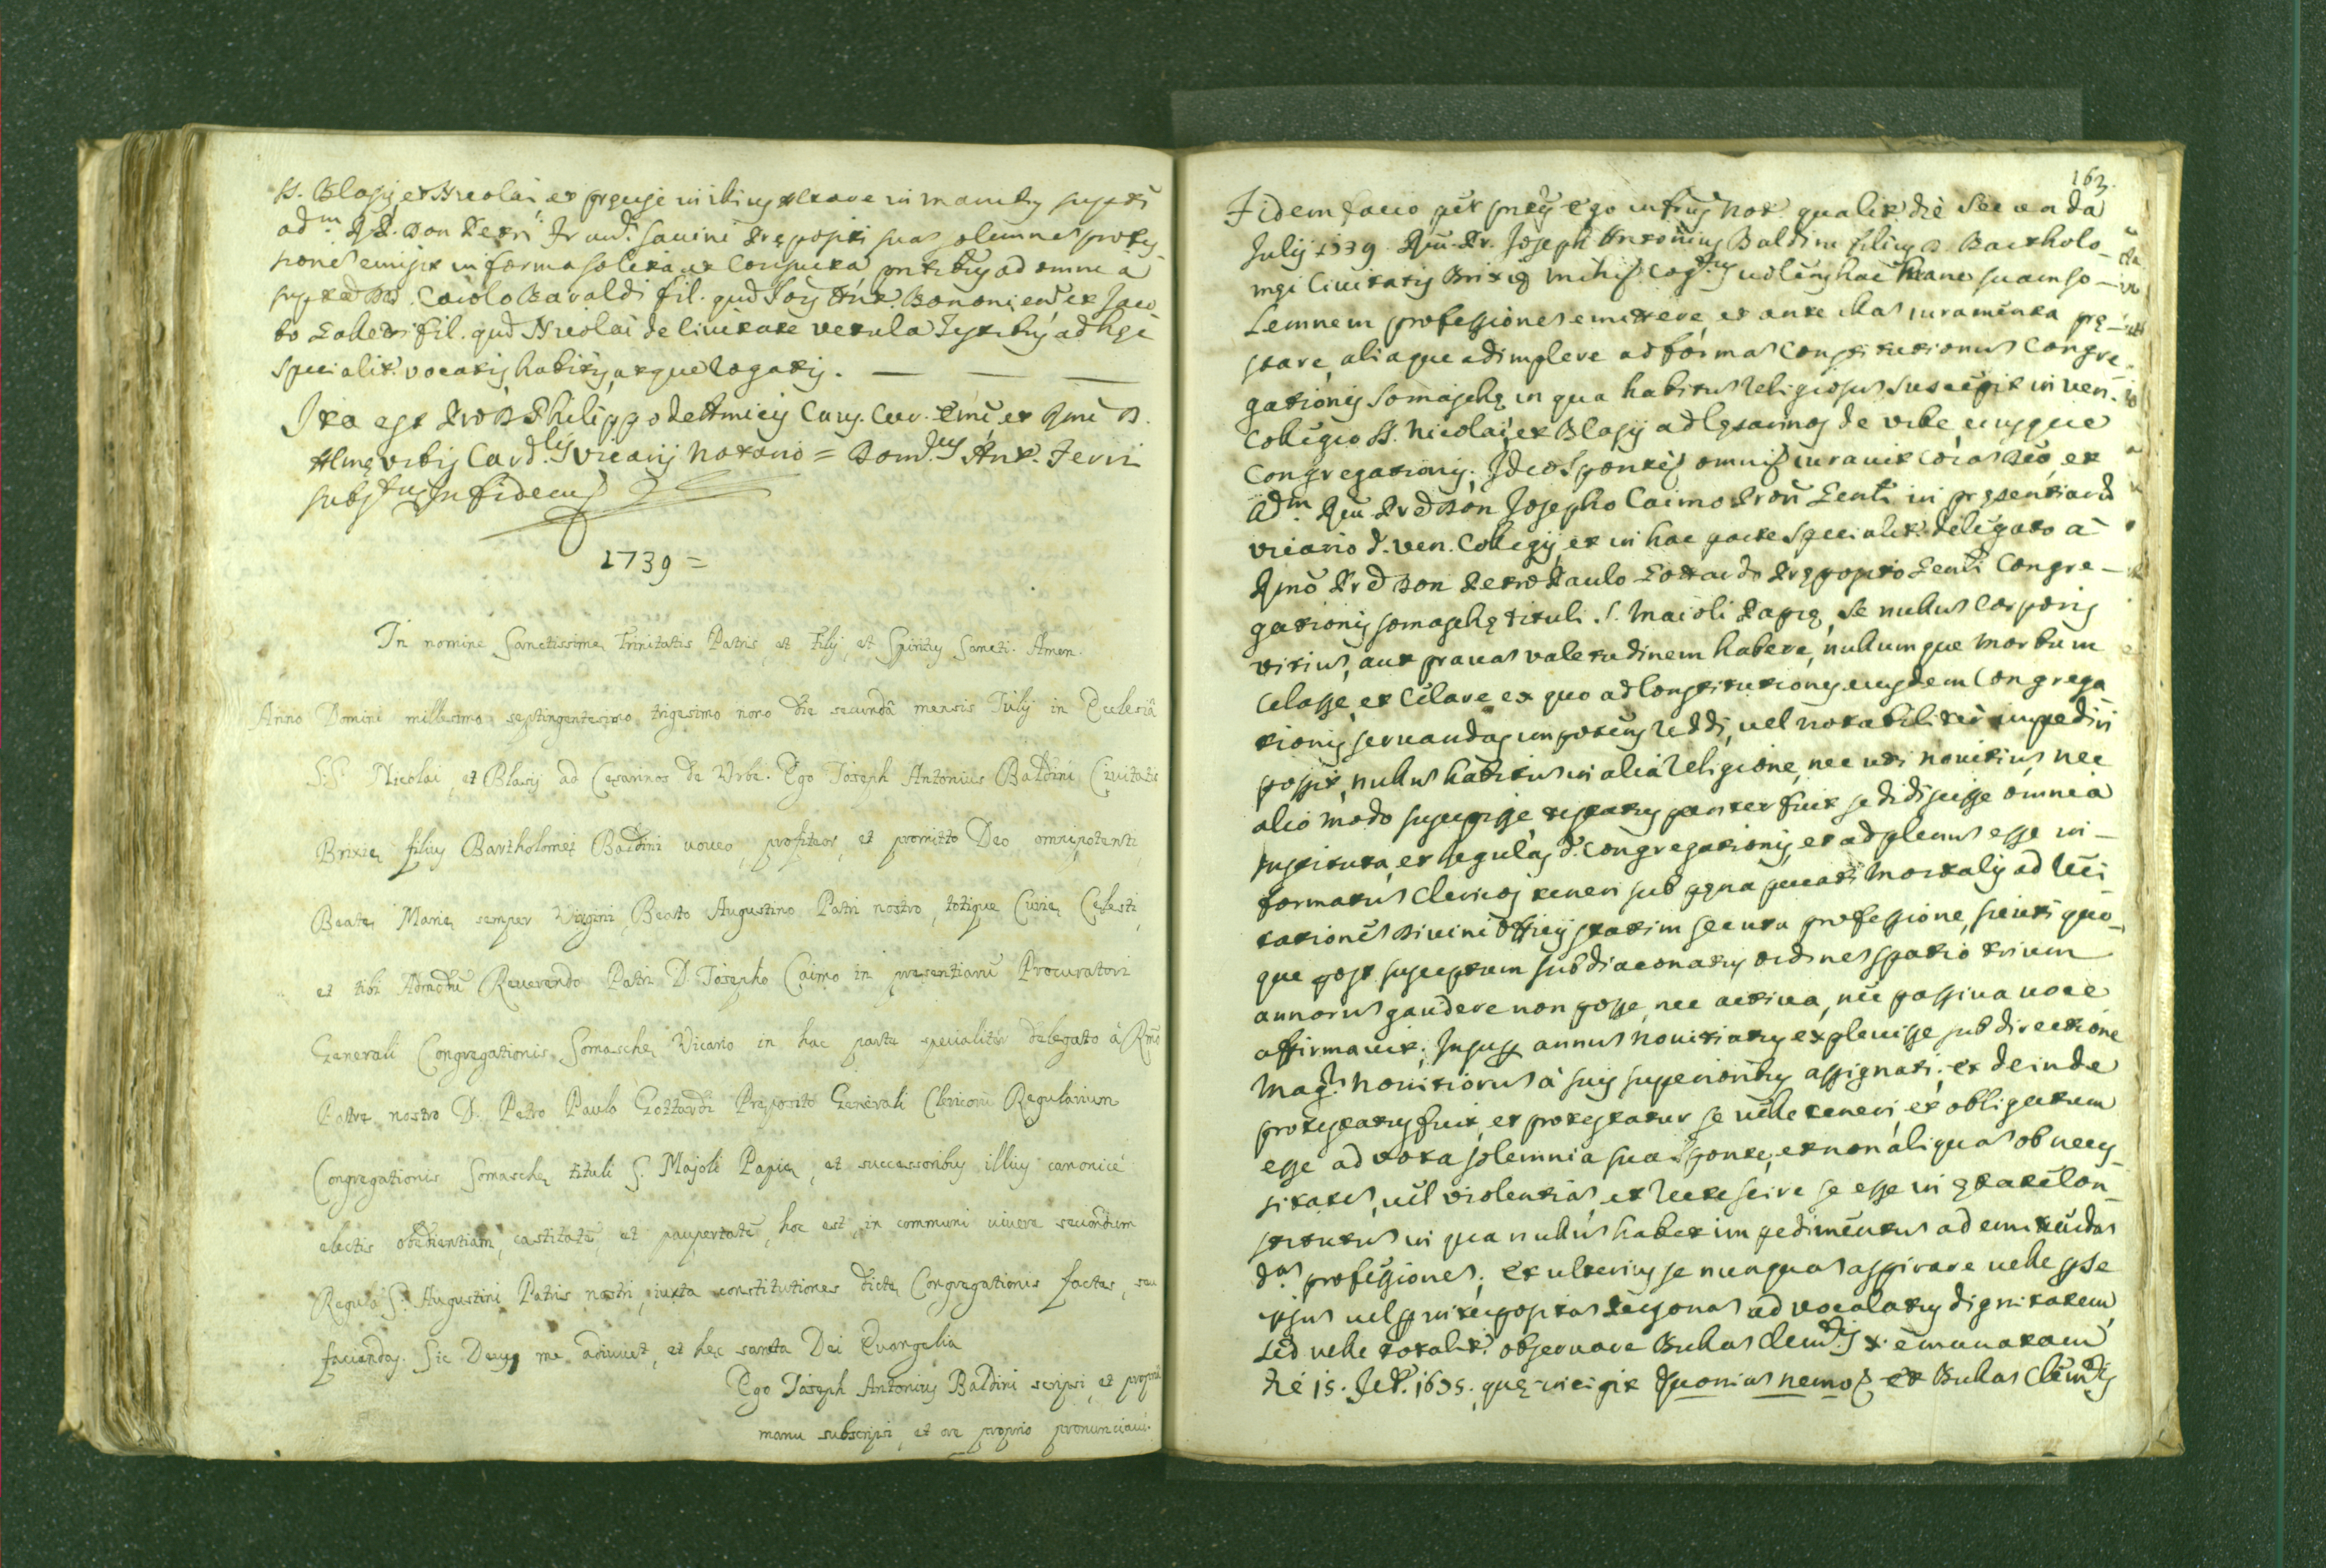 SS. Blasij, et Nicolai, et pręcise in illius Altare in manibus supti
adm. R.P. Don Petri Franc.i Savini Prępositi suas solemnes profes-
siones emisit in forma solita et consueta pntibus ad omnia
supta DD. Carolo Baraldi fil. qud Ioïs Ant. Bononien et Iaco-
bo fil. qud Nicolai de Civitate vetula Testibus ad hęc
specialit. vocatis, habitis, atque rogatis. — — —
Ita est pro D. Philippo de Amicis Cur. Emi et Rmi D.
Almę Urbis Card.lis Vicarij Notario = Dom.cus Ant. Ferri
subs.tus In fidem
1739 =
In nomine Sanctissimę Trinitatis Patris, et Filij, et Spiritus Sancti. Amen.
Anno Domini millesimo septingentesimo trigesimo nono die secundâ mensis Iulij in Ecclesiâ
S.S. Nicolai, et Blasij ad Cęsarinos de Urbe. Ego Ioseph Antonius Baldini Civitatis
Brixię filius Bartholomęi Baldini voveo, profiteor, et promitto Deo omnipotenti,
Beatę Marię semper Virgini, Beato Augustino Patri nostro, totique Curię Cęlesti,
et tibi Admodū Reverendo Patri D. Iosepho Caimo in pręsentiarū Procuratori
Generali Congregationis Somaschę Vicario in hac parte specialiter delegato à Rmo
Patre nostro D. Petro Paulo Gottardi Pręposito Generali Clericorū Regularium
Congregationis Somaschę tituli S. Majoli Papię, et successoribus illius canonicè
electis obedientiam, castitatē, et paupertatē, hoc est, in communi vivere secundum
Regulā S. Augustini Patris nostri, iuxta constitutiones dictę Congregationis factas, seu
faciendas. Sic Deus me adiuvet, et hęc sancta Dei Evangelia
Ego Ioseph Antonius Baldini scripsi, et propriâ
manu subscripsi, et ore proprio pronunciavi.
163.
Fidem facio per pntes ego infrus Not. qualit. die Secunda
Julij 1739. Rev. Fr. Joseph Antonius Baldini filius D. Bartholo-
męi Civitatis Brixię mihi cog.tus volens hac mane suam so-
Lemnem professionem emittere, et ante illas iuramenta prę-
stare, aliaque adimplere ad formas Constitutionum Congre-
gationis Somaschę in qua habitus Religiosus suscepit in Ven.
Collegio SS. Nicolai, et Blasij ad Cęsarinos de Urbe, eiusque
Congregationis. Ideo sponte omni iuravit coras Deo, et
adm. Rev. Prē Don Josepho Caimo Proc. Genli in pręsentiarū
vicario d. Ven. Collegij, et in hac parte specialit. delegato à
Rmo Prē Don Petro Paulo Gottardo Pręposito Genli Congre-
gationis somaschę tituli S. Maioli Papię, se nullus Corporis
vitius, aut pravas valetudinem habere, nullumque Morbum
Celasse, et Celare ex quo ad Constitutiones eiusdem Congrega-
tionis servandas impotens reddi, vel notabiliter impediri
possit, nullus habitus in alia religione, nec uti novitius, nec
alio modo suscepisse testatus pariter fuit se didicisse omnia
instituta, et regulas d. Congregationis, et ad plenus esse in-
formatus Clericos teneri sub pęna peccati Mortalis ad reci-
tationes Divini Officij statim secuta professione, sicuti quo-
que post susceptum subdiaconatus ordines spatio trium
annorus gaudere non posse, nec activa, nec passiva voce
affirmavit; Insup. annus novitiatus explevisse sub directione
Mag.ri Novitiorus à suis superioribus assignati; et deinde
protestatus fuit, et protestatur se velle teneri, et obligatum
esse ad vota solemnia sua sponte, et non aliquas ob neces-
sitates, vel violentias, et recte scire se esse in ętate con-
stitutus in qua nullus habet impedimentus ad emittendas
d.as professiones; et ulterius se nunquas aspirare velle p se
ipsus vel p interpositas Personas ad vocalatus dignitatem,
sed velle totalit. observare Bullas Clem.tis X. emanatam
die 15. Sept. 1695. quę incipit Quonias nemo et Bullas Clem.tis